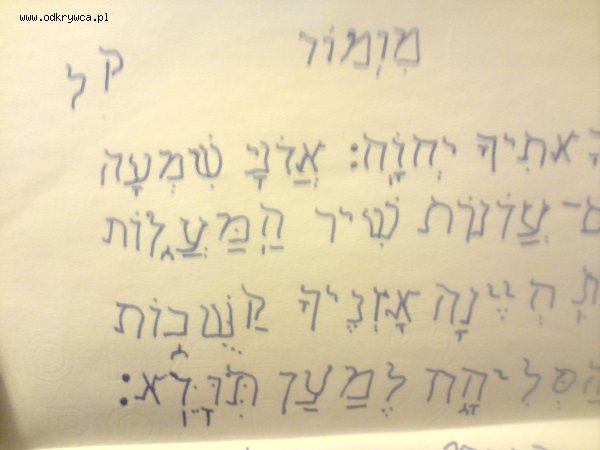 www.odkrywca.pl
מִוְמוֹר
קל
אתִיךָ יְהֹוָה: אֲדֹנָי שִׁמְעָה
שִׁיר הַמַּעֲלוֹת
הְיֶינָה אָזְנֶיךָ קַשֻּׁבוֹת
הַסְּלִיחָה לְמַעַן תִּוָּרֵא: